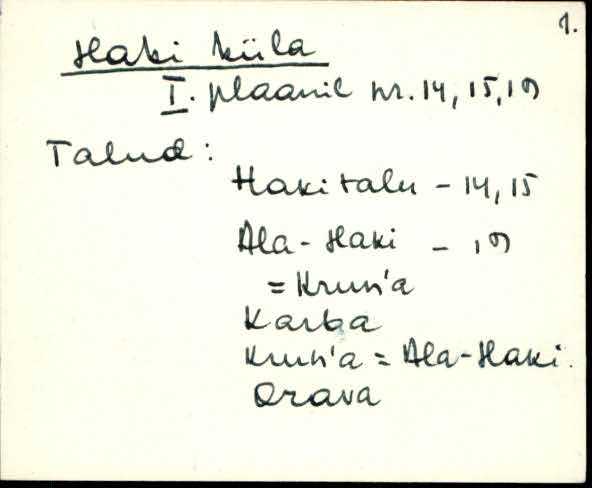 1.
Haki küla
I. plaanil nr. 14, 15, 19
Talud:
Haki talu - 14, 15
Ala-Haki - 19
= Krun'a
Karba
Krun'a = Ala-Haki.
Orava